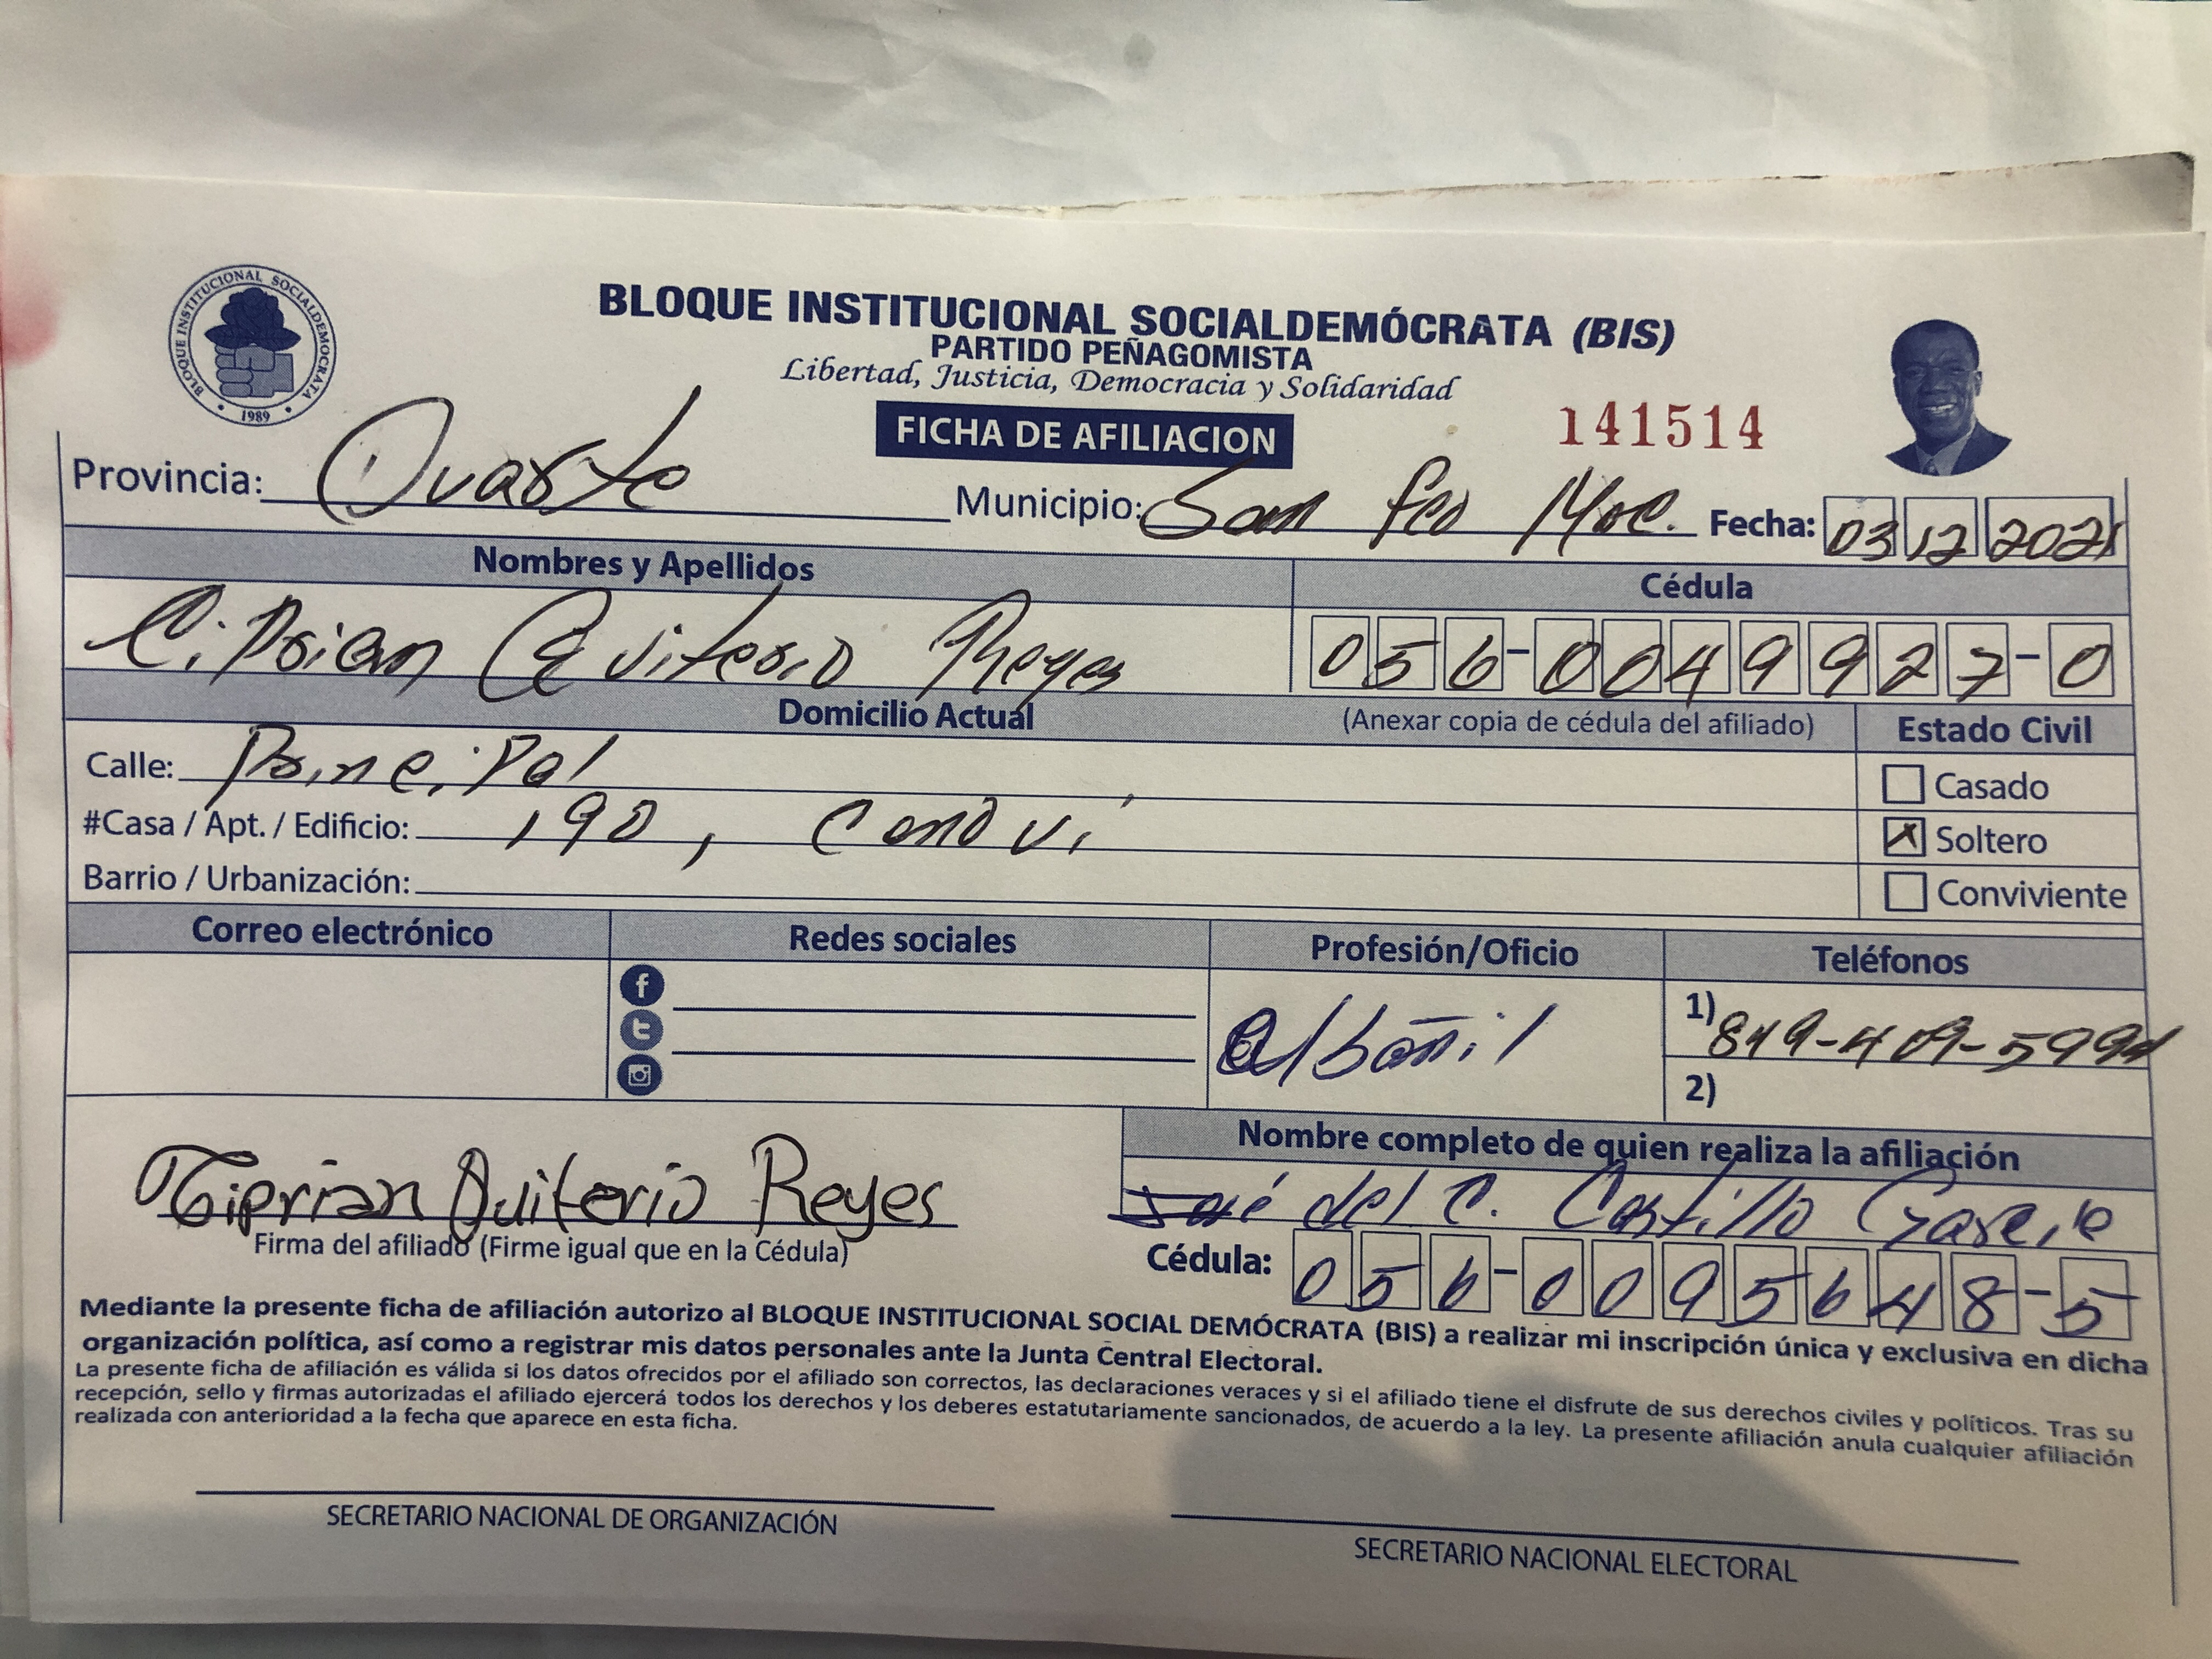 BLOQUE INSTITUCIONAL SOCIALDEMOCRATA
1989
BLOQUE INSTITUCIONAL SOCIALDEMÓCRATA (BIS)
PARTIDO PEÑAGOMISTA
Libertad, Justicia, Democracia y Solidaridad
FICHA DE AFILIACION
141514
Provincia: Duarte Municipio: San Fco Mac. Fecha: 03 12 2021
Nombres y Apellidos Cédula
Ciprian Quiterio Reyes 056-0049927-0
Domicilio Actual (Anexar copia de cédula del afiliado) Estado Civil
Calle: Principal Casado
#Casa / Apt. / Edificio: 190, Cenovi Soltero
Barrio / Urbanización: Conviviente
Correo electrónico Redes sociales Profesión/Oficio Teléfonos
Albañil 1) 849-409-5994
2)
Nombre completo de quien realiza la afiliación
Ciprian Quiterio Reyes José del C. Castillo Garcia
Firma del afiliado (Firme igual que en la Cédula) Cédula: 056-0095648-5
Mediante la presente ficha de afiliación autorizo al BLOQUE INSTITUCIONAL SOCIAL DEMÓCRATA (BIS) a realizar mi inscripción única y exclusiva en dicha
organización política, así como a registrar mis datos personales ante la Junta Central Electoral.
La presente ficha de afiliación es válida si los datos ofrecidos por el afiliado son correctos, las declaraciones veraces y si el afiliado tiene el disfrute de sus derechos civiles y políticos. Tras su
recepción, sello y firmas autorizadas el afiliado ejercerá todos los derechos y los deberes estatutariamente sancionados, de acuerdo a la ley. La presente afiliación anula cualquier afiliación
realizada con anterioridad a la fecha que aparece en esta ficha.
SECRETARIO NACIONAL DE ORGANIZACIÓN SECRETARIO NACIONAL ELECTORAL